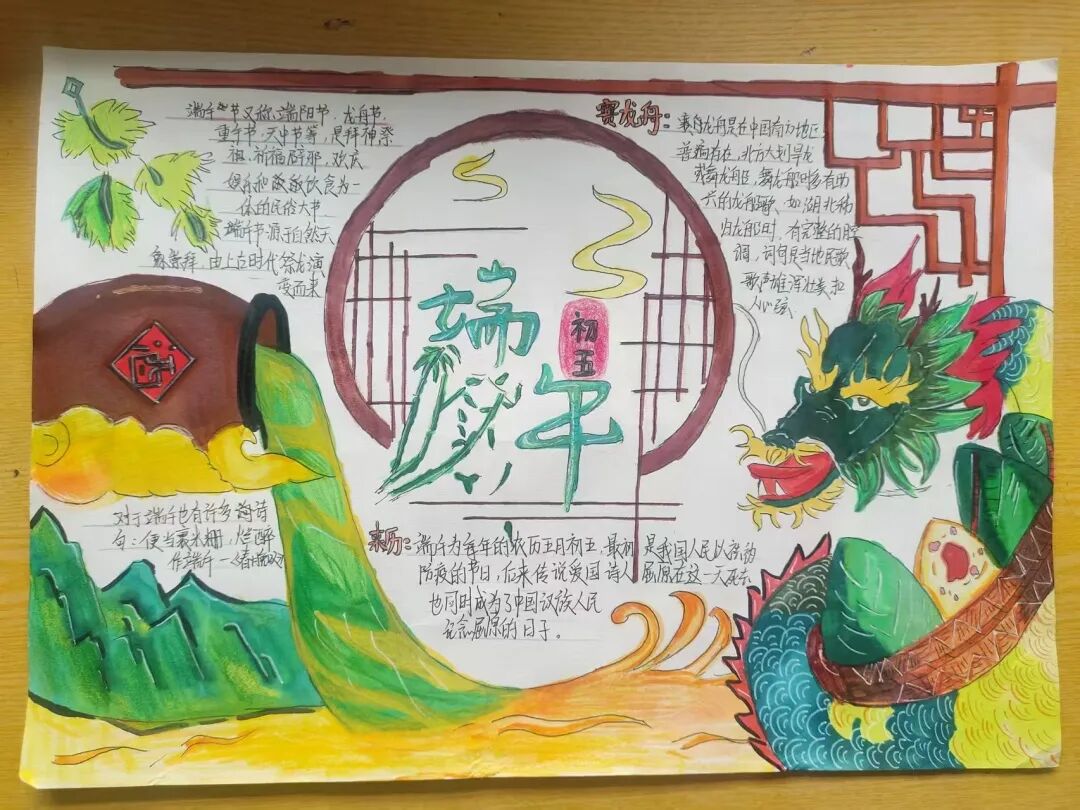 端午节又称端阳节、龙舟节、
重午节、天中节等，是拜神祭
祖、祈福辟邪、欢庆
娱乐和饮食为一
体的民俗大节
端午节源于自然天
象崇拜，由上古时代祭龙演
变而来
赛龙舟：赛龙舟是在中国南方地区
普遍存在，北方大划旱龙
或舞龙船，舞龙船时多有助
兴的龙船歌、如湖北秭
归龙船时，有完整的腔
调，词句是当地民歌
歌声雄浑壮美扣
人心弦
端午
初五
对于端午也有许多词诗
句：便当裹米栅，烂醉
作端午一《春雨
来历：端午为每年的农历五月初五，最初是我国人民以
防疫的节日，后来传说爱国诗人屈原在这一天死去
也同时成为了中国汉族人民
纪念屈原的日子。